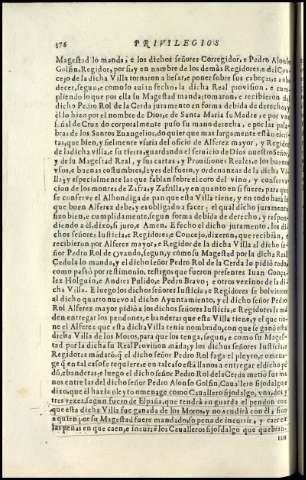 376 PRIVILEGIOS
Magestad lo manda; e los dichos señores Corregidor, e Pedro Alonso
Golfin, Regidor, por si, y en nombre de los demás Regidores, e del Con-
cejo de la dicha Villa tornaron a besar, e poner sobre sus cabeças, e obe-
decer, segun, e como lo auian fecho, la dicha Real prouision, e cum-
pliendo lo que por ella su Magestad manda, tomaron, e recibieron del
dicho Pedro Rol de la Cerda juramento en forma debida de derecho, y
él lo hizo por el nombre de Dios, e de Santa Maria su Madre, e por vna
señal de Cruz do corporalmente puso su mano derecha, e por las pala-
bras de los Santos Euangelios, do quier que mas largamente están escri-
tas, que bien, y fielmente vsaria del oficio de Alferez mayor, y Regidor
de la dicha villa, e su tierra, guardando el seruicio de Dios nuestro Señor
y de su Magestad Real, y sus cartas, y Prouisiones Reales, e los buenos
vsos, e buenas costumbres, leyes del fuero, y ordenanças de la dicha Vi-
lla; y especialmente las que hablan sobre el coto del vino, y conserua-
cion de los montes de Zafra, y Zafrilla, y en quanto en si fuere, para que
se conserve el Alhondiga de pan que esta Villa tiene, y en todo hará lo
que buen Alferez debe, y es obligado a facer; el qual dicho juramento
fizo bien, e cumplidamente, segun forma debida de derecho, y respon-
diendo a él, dixo, si juro, e Amen. E fecho el dicho juramento, los di-
chos señores Iusticia, e Regidores, e Concejo, dixeron, que recibian, e
recibieron por Alferez mayor, e Regidor de la dicha Villa al dicho se-
ñor Pedro Rol de Ouando, segun, y cómo su Magestad por la dicha Real
Cedula lo manda, y el dicho señor Pedro Rol de la Cerda lo pidió todo
como passó por testimonio, testigos que fueron presentes Iuan Gonça-
lez Holguin, e Andres Polido, Pedro Brauo, e otros vezinos de la di-
cha Villa. E luego los dichos señores Iusticia, e Regidores se boluieron
al dicho quarto nueuo al dicho Ayuntamiento, y el dicho señor Pedro
Rol Alferez mayor pidió a los dichos señores Iusticia, e Regidores le ma-
den entregar los pendones, e banderas que esta Villa tiene, y el que to-
ne el Alferez que esta dicha Villa tenia nombrado, con que se ganó esta
dicha Villa de los Moros, para que los tenga, segun, e como su Mages-
tad por la dicha su Real Prouision máda, y los dichos señores Iusticia, e
Regidores mádaró, q̃ el dicho señor Pedro Rol faga el pleyto, e omena-
ge q̃ en tal caso se requiere, e en talcaso está llanos a entregar el dicho pé-
dó, e banderas, e luego el dicho señor Pedro Rol de la Cerda metió sus ma-
nos entre las del dicho señor Pedro Alonso Golfin, Cauallero fijodalgo
dixo, que él hazia pleyto omenage como Cauallero fijodalgo, vna, dos, y
tres vezes, segun fuero de España, que tendrá en guarda el pendon con
que esta dicha Villa fue ganada de los Moros, y no acudirá con él a otro
a quien por su Magestad fuere mandado, so pena de incurrir, y caer en
las penas en que caen, e incurré los Caualleros fijosdalgo que quebran-